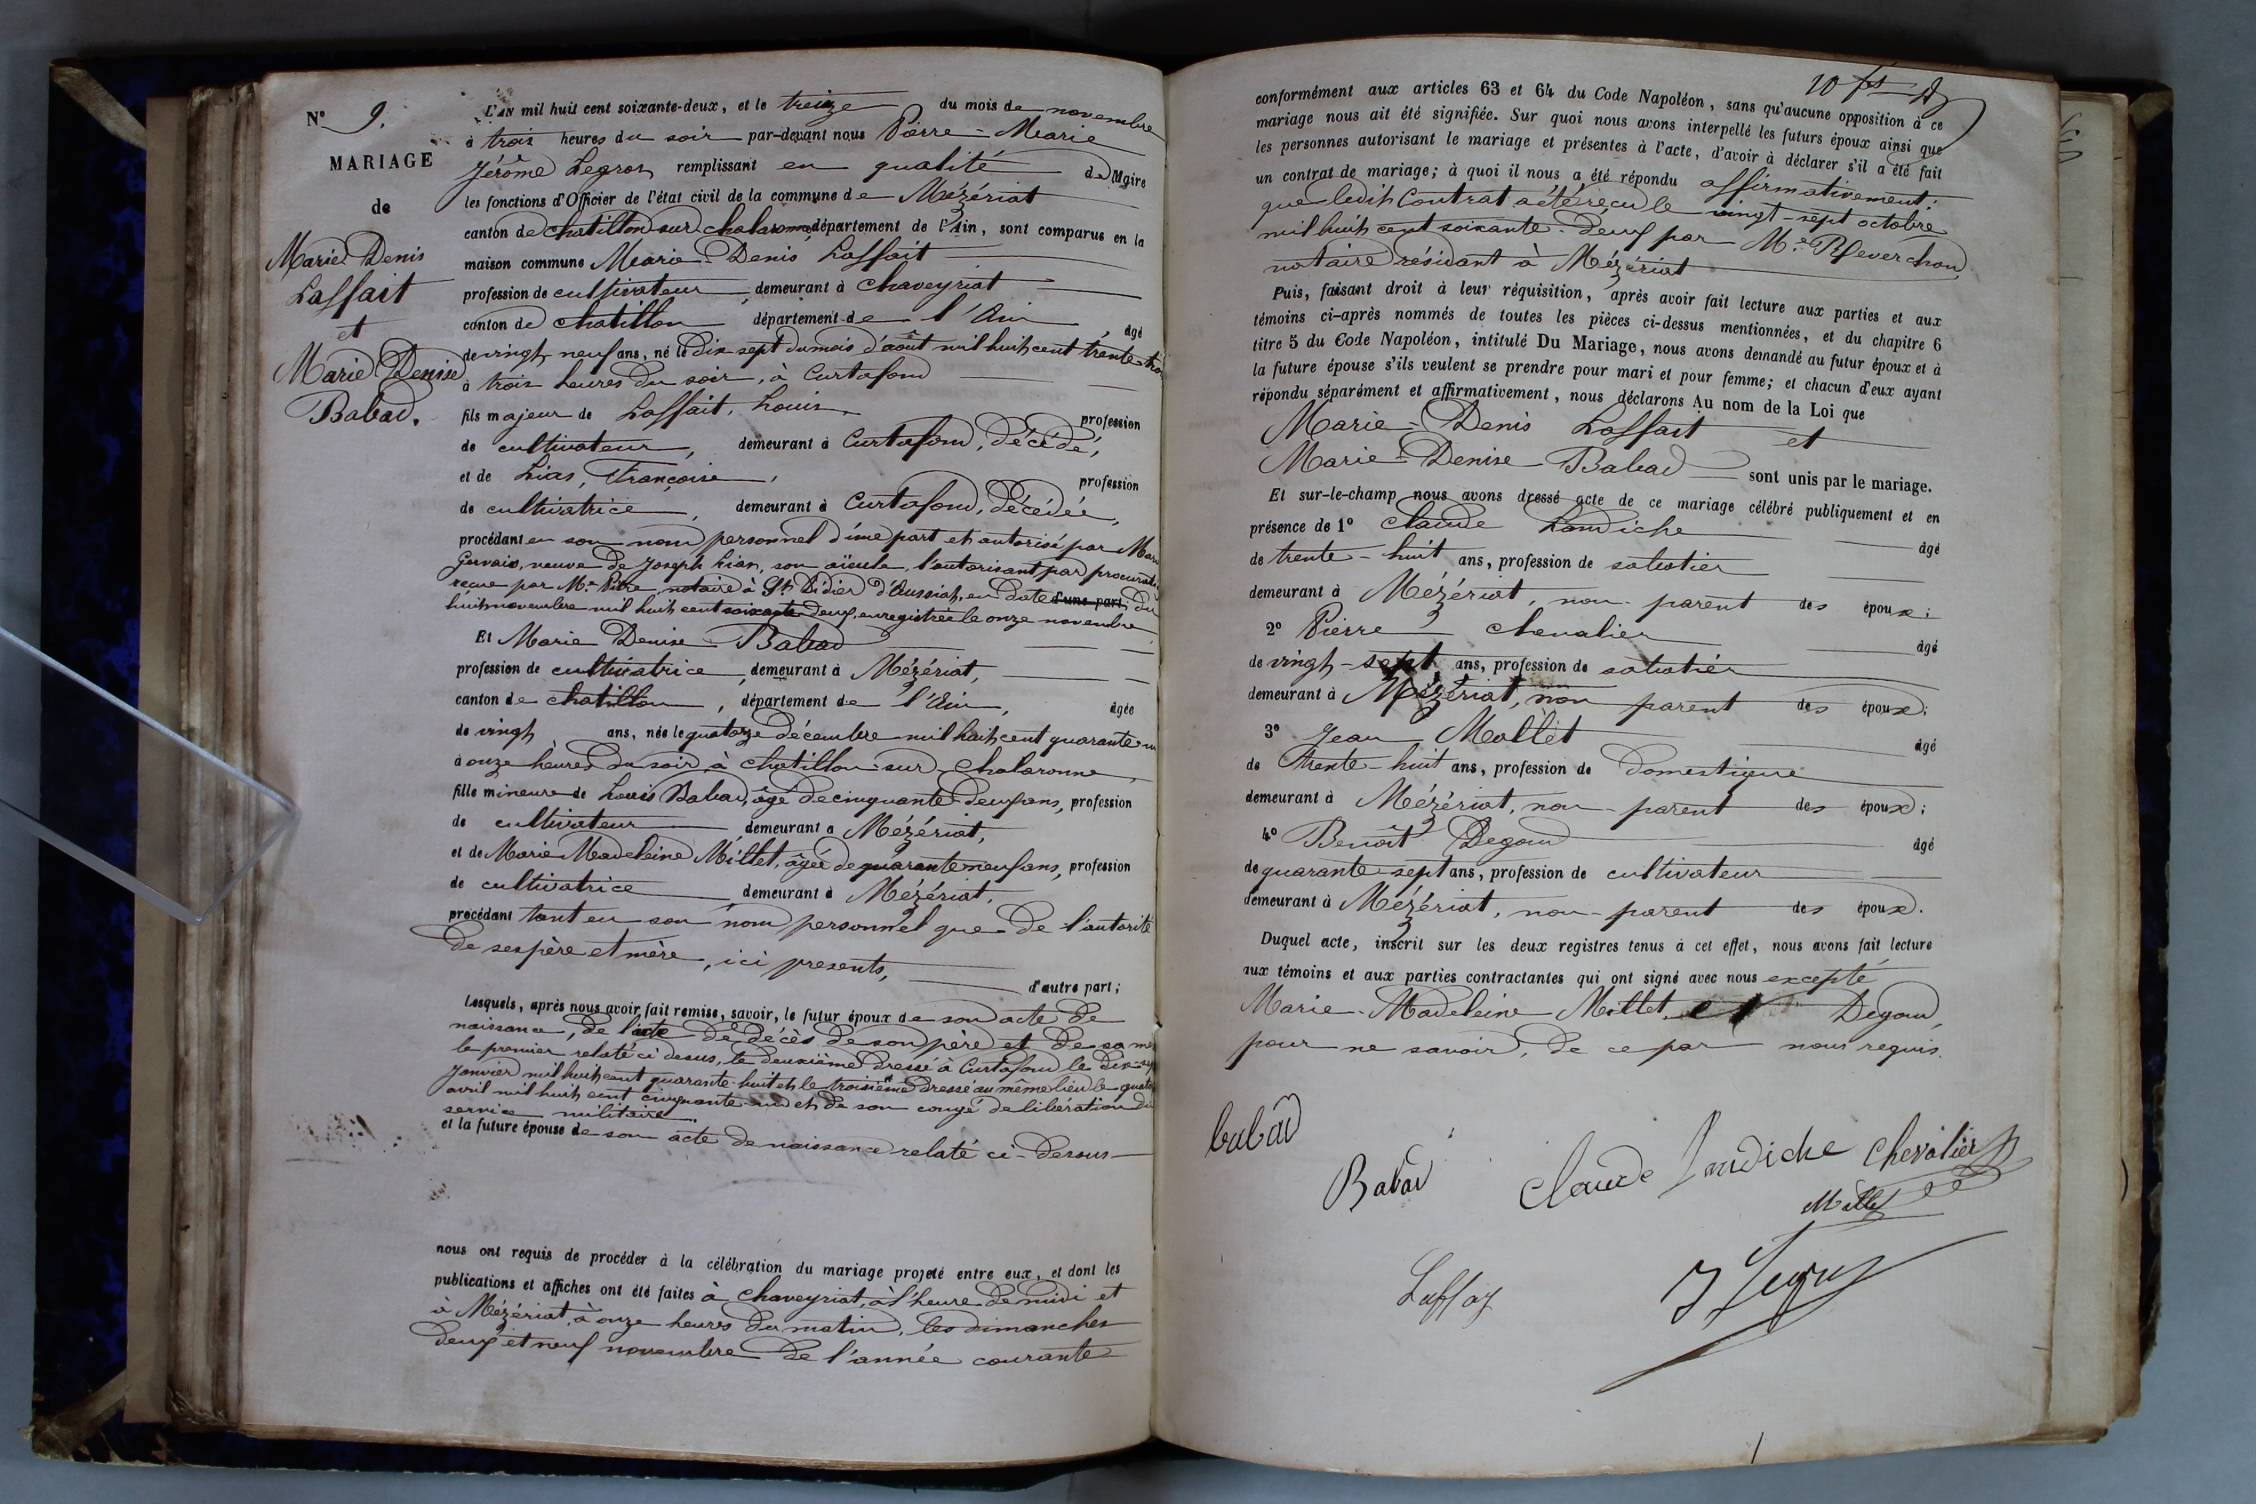 N° 9.
MARIAGE
de
Marie Denis
Laffait
et
Marie Denise
Babad.
L'AN mil huit cent soixante-deux, et le treize du mois de novembre
à trois heures du soir par-devant nous Pierre-Marie
Jérôme Legros, remplissant en qualité de Maire
les fonctions d'Officier de l'état civil de la commune de Mézériat
canton de chatillon sur chalaronne, département de l'Ain, sont comparus en la
maison commune Marie-Denis Laffait
profession de cultivateur, demeurant à Chaveyriat
canton de chatillon département de l'Ain, âgé
de vingt neuf ans, né le dix sept du mois d'août mil huit cent trente-trois
à trois heures du soir, à Curtafond
fils majeur de Laffait, Louis, profession
de cultivateur, demeurant à Curtafond, décédé,
et de Lias, Françoise, profession
de cultivatrice, demeurant à Curtafond, décédée,
procédant en son nom personnel d'une part et autorisé par Marie
Gervais, veuve de Joseph Lias, son aïeule, l'autorisant par procuration
reçue par Me notaire à St Didier d'Aussiat, en date d'une part; du
huit novembre mil huit cent soixante deux, enregistrée le onze novembre
Et Marie Denise Babad
profession de cultivatrice, demeurant à Mézériat,
canton de chatillon, département de l'Ain, âgée
de vingt ans, née le quatorze décembre mil huit cent quarante un
à onze heures du soir, à chatillon-sur-Chalaronne,
fille mineure de Louis Babad, âgé de cinquante deux ans, profession
de cultivateur demeurant à Mézériat,
et de Marie Madeleine Millet, âgée de quarante neuf ans, profession
de cultivatrice demeurant à Mézériat,
procédant tant en son nom personnel que de l'autorité
de ses père et mère, ici presents, d'autre part;
Lesquels, après nous avoir fait remise, savoir, le futur époux de son acte de
naissance, de l'acte de décès de son père et de sa mère
le premier relaté ci dessus, le deuxième dressé à Curtafond le dix-sept
janvier mil huit cent quarante-huit et le troisième dressé au même lieu le quatre
avril mil huit cent cinquante-un et de son congé de libération du
service militaire.
et la future épouse de son acte de naissance relaté ci-dessus
nous ont requis de procéder à la célébration du mariage projeté entre eux, et dont les
publications et affiches ont été faites à Chaveyriat, à l'heure de midi et
à Mézériat, à onze heures du matin, les dimanches
deux et neuf novembre de l'année courante
10 fs
conformément aux articles 63 et 64 du Code Napoléon, sans qu'aucune opposition à ce
mariage nous ait été signifiée. Sur quoi nous avons interpellé les futurs époux ainsi que
les personnes autorisant le mariage et présentes à l'acte, d'avoir à déclarer s'il a été fait
un contrat de mariage; à quoi il nous a été répondu affirmativement:
que ledit Contrat a été reçu le vingt-sept octobre
mil huit cent soixante-deux par Me Reverchon,
notaire résidant à Mézériat
Puis, faisant droit à leur réquisition, après avoir fait lecture aux parties et aux
témoins ci-après nommés de toutes les pièces ci-dessus mentionnées, et du chapitre 6
titre 5 du Code Napoléon, intitulé Du Mariage, nous avons demandé au futur époux et à
la future épouse s'ils veulent se prendre pour mari et pour femme; et chacun d'eux ayant
répondu séparément et affirmativement, nous déclarons Au nom de la Loi que
Marie-Denis Laffait et
Marie-Denise Babad sont unis par le mariage.
Et sur-le-champ nous avons dressé acte de ce mariage célébré publiquement et en
présence de 1° Claude Landiche âgé
de trente-huit ans, profession de sabotier
demeurant à Mézériat, non-parent des époux;
2° Pierre Chevalier âgé
de vingt-sept ans, profession de sabotier
demeurant à Mézériat, non parent des époux;
3° Jean Mollet âgé
de trente-huit ans, profession de domestique
demeurant à Mézériat, non-parent des époux;
4° Benoît Degoud âgé
de quarante sept ans, profession de cultivateur
demeurant à Mézériat, non-parent des époux.
Duquel acte, inscrit sur les deux registres tenus à cet effet, nous avons fait lecture
aux témoins et aux parties contractantes qui ont signé avec nous excepté
Marie-Madeleine Millet, et Degoud,
pour ne savoir, de ce par nous requis.
babad
Babad
Claude Landiche
Chevalier